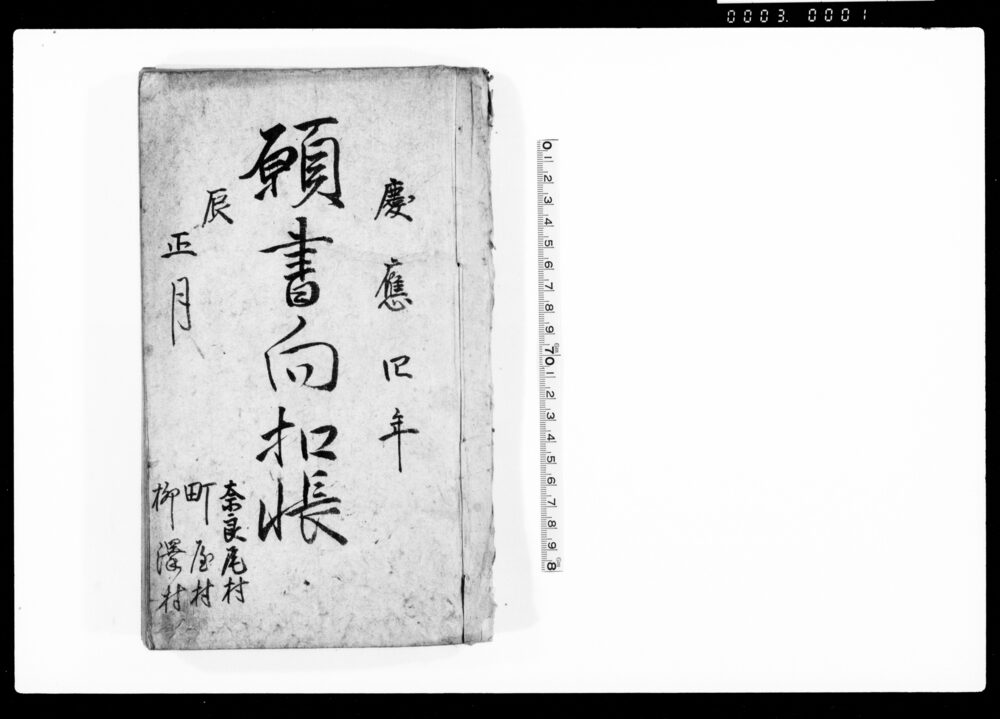 0003. 0001
慶應四年
願書向扣帳
辰
正月
奈良尾村
町屋村
柳澤村
0 1 2 3 4 5 6 7 8 9 10 1 2 3 4 5 6 7 8 9 8